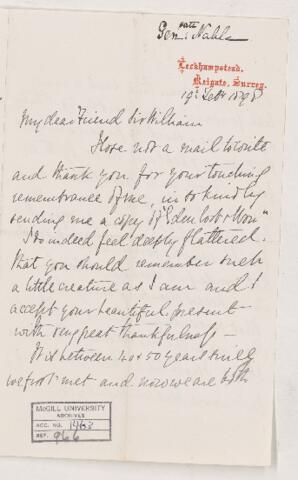 Gen: Nable
Leckhampstead,
Reigate, Surrey.
19: Feb: 1898
My dear Friend Sir William
I lose not a mail to write
and thank you for your touching
remembrance of me, in so kindly
sending me a copy of "Eden lost & Won"
I do indeed feel deeply flattered
that you should remember such
a little creature as I am and I
accept your beautiful present
with very great thankfulness —
It is between 40 & 50 years since
we first met and now we are both
McGILL UNIVERSITY
ARCHIVES
ACC. NO. 1463
REF. 966